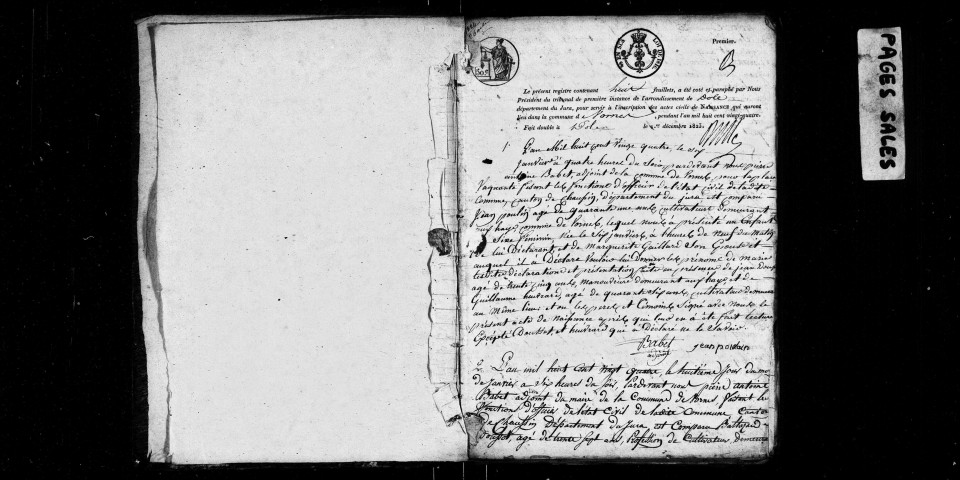 Premier.
Le présent registre contenant huit feuillets, a été coté et paraphé par Nous
Président du tribunal de première instance de l'arrondissement de Dole
département du Jura, pour servir à l'inscription des actes civils de NAISSANCE qui auront
lieu dans la commune d pendant l'an mil huit cent vingt-quatre.
Fait double à Dole le décembre 1823.
1. L'an Mil huit cent vingt quatre, le six
janvier à quatre heures du Soir pardevant nous pierre
antoine Babet, adjoint de la commune de la place
Vaquante faisant les fonctions d'officier de l'état civil de la dite
Commune, canton de Chaussin, département du jura, est comparu
jean agé de quarante une ans cultivateur demeurant
aux hays, commune de lequel nous a présenté un Enfant
de Sexe féminin, née le Six janvier, à heures de neuf du Matin
de lui Déclarant et de Marguerite Guillard Son Epouse et
auquel il a Déclaré Vouloir lui donner les prénoms de marie
déclaration et présentation faite en présence de jean
agé de trente cinq ans, Manouvrier demeurant aux hays, et de
Guillaume agé de quarante ans, cultivateur demeurant
au même lieu et ont les pères et témoins Signé avec nous le
présent acte de naissance après que leur en a été fait lecture
Excepté et qui a Déclaré ne le Savoir.
Babet
adjoint
2. L'an mil huit cent vingt quatre, le huitième jour du mois
de janvier a Six heures du soir, Pardevant nous pierre antoine
Babet adjoint du maire de la Commune de faisant les
fonctions d'officier de l'état Civil de ladite Commune, Canton
de Chaussin Département du Jura, est Comparu
agé de trente sept ans, Profession de Cultivateur, demeurant
PAGES SALES